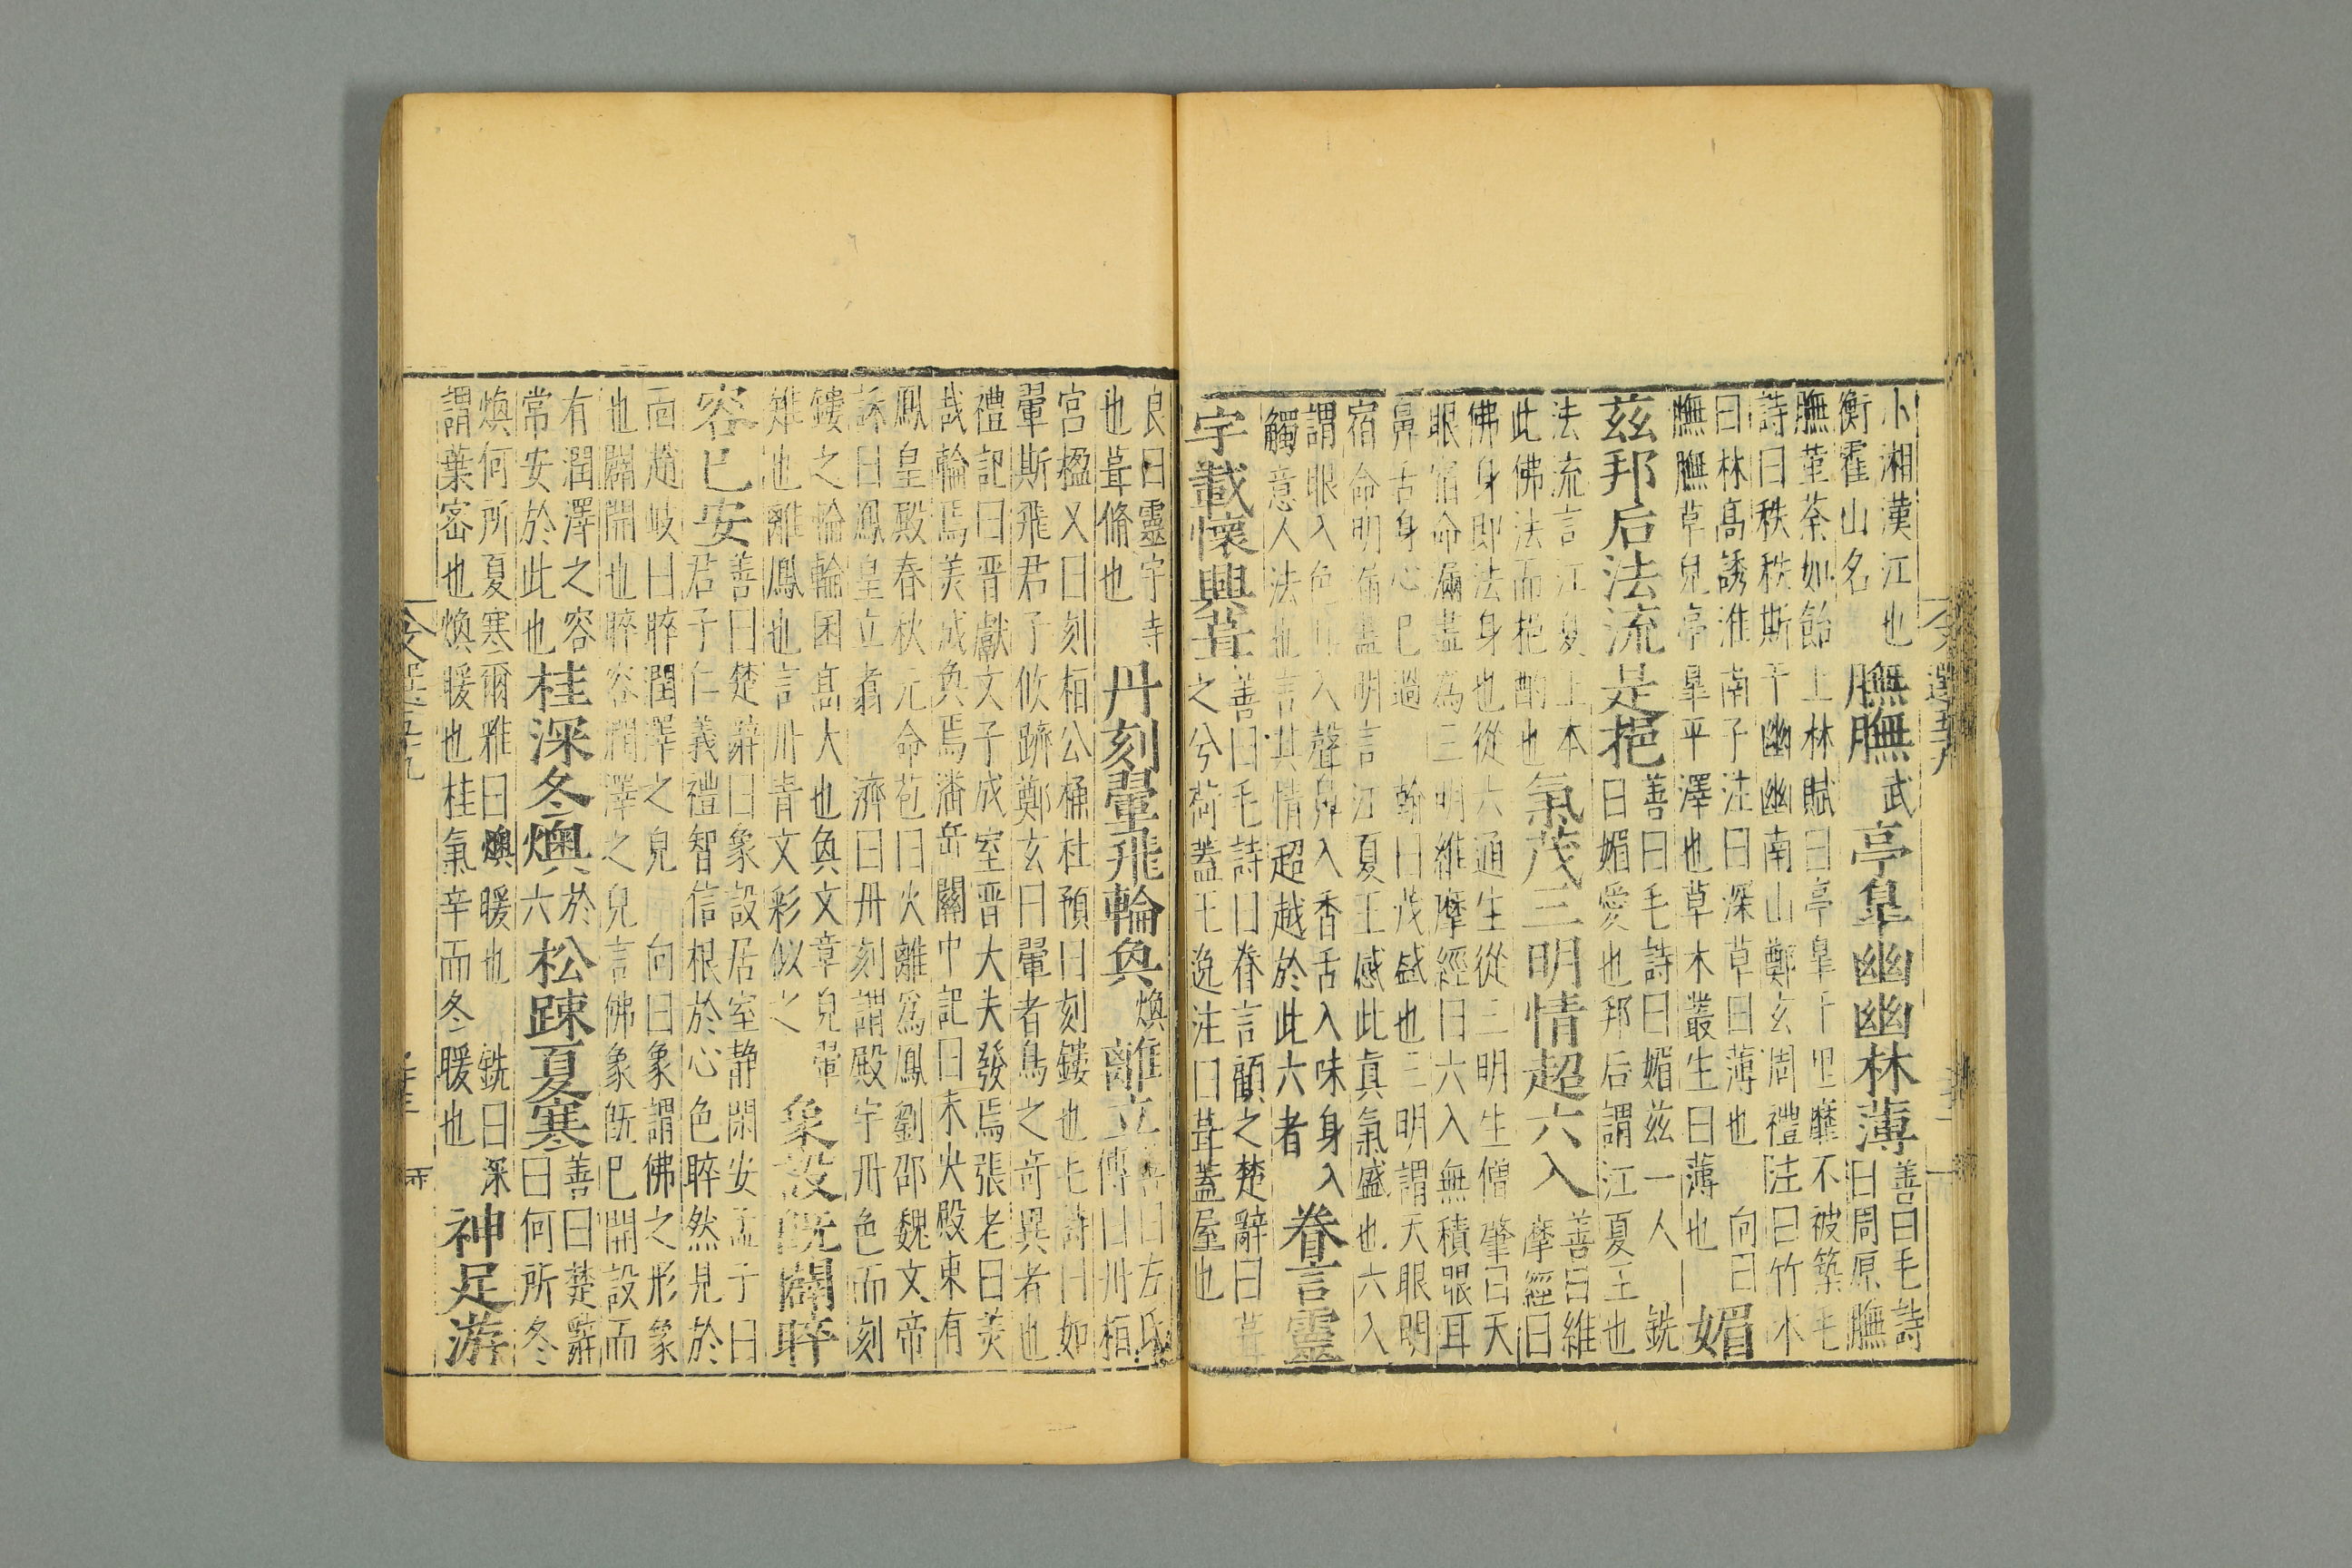 小湘漢江也
衡霍山名
膴膴武亭皐幽幽林薄
善曰毛詩
曰周原膴
膴菫荼如飴　上林賦曰亭皐千里靡不被築毛
詩曰秩秩斯干幽幽南山鄭玄周禮注曰竹木
曰林高誘淮南子注曰深草曰薄也　向曰
膴膴草皃亭皐平澤也草木叢生曰薄也
媚
茲邦后法流是挹
善曰毛詩曰媚茲一人　銑
曰媚愛也邦后謂江夏王也
法流言江夏上本
此佛法而挹酌也
氣茂三明情超六入
善曰維
摩經曰
佛身即法身也從六通生從三明生僧肇曰天
眼宿命漏盡為三明維摩經曰六入無積眼耳
鼻舌身心巳過　翰曰茂盛也三明謂天眼明
宿命明漏盡明言江夏王感此真氣盛也六入
謂眼入色耳入聲鼻入香舌入味身入
觸意入法也言其情超越於此六者
眷言靈
宇載懷興葺
善曰毛詩曰眷言顧之楚辭曰葺
之兮荷蓋王逸注曰葺蓋屋也
良曰靈宇寺
也葺脩也
丹刻翬飛輪奐煥離立
善曰左氏
傳曰丹桓
宮楹又曰刻桓公桷杜預曰刻鏤也毛詩曰如
翬斯飛君子攸躋鄭玄曰翬者鳥之奇異者也
禮記曰晉獻文子成室晉大夫發焉張老曰美
哉輪焉美成奐焉潘岳關中記曰未央殿東有
鳳皇殿春秋元命苞曰火離爲鳳劉邵魏文帝
誄曰鳳皇立翥　濟曰丹刻謂殿宇丹色而刻
鏤之輪輪囷高大也奐文章皃翬
雉也離鳳也言丹青文彩似之
象設既闢睟
容已安
善曰楚辭曰象設居室静閑安孟子曰
君子仁義禮智信根於心色睟然見於
面趙岐曰睟潤澤之皃　向曰象謂佛之形象
也闢開也睟容潤澤之皃言佛象既巳開設而
有潤澤之容
常安於此也
桂深冬燠於六松踈夏寒
善曰楚辭
曰何所冬
煥何所夏寒爾雅曰燠暖也　銑曰深
謂葉密也煥暖也桂氣辛而冬暖也
神足游